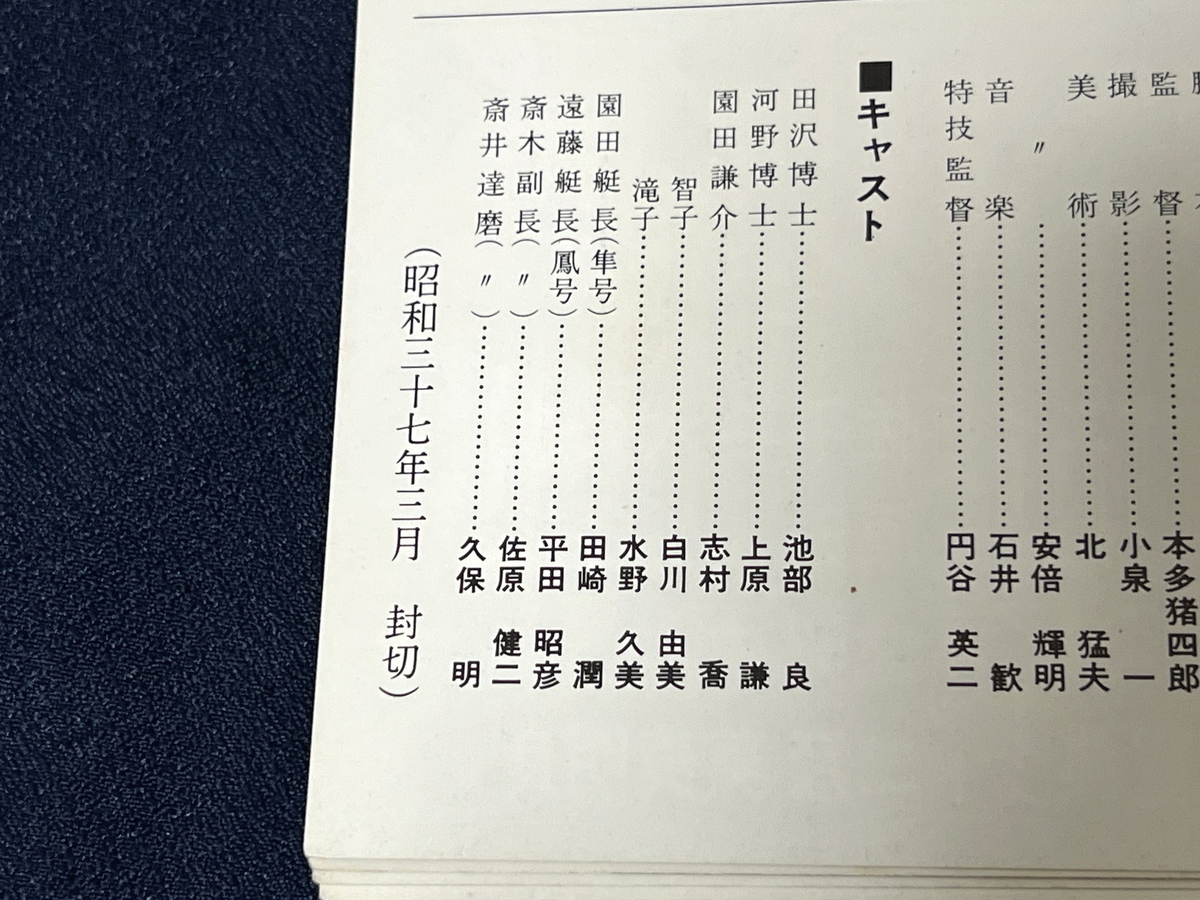 監督……本多猪四郎
撮影……小泉 一
美術……北 猛夫
〃……安倍 輝明
音楽……石井 歓
特技監督……円谷 英二
■キャスト
田沢博士……池部 良
河野博士……上原 謙
園田謙介……志村 喬
智子……白川 由美
滝子……水野 久美
園田艇長（隼号）……田崎 潤
遠藤艇長（鳳号）……平田 昭彦
斎木副長（〃）……佐原 健二
斎井達磨（〃）……久保 明
（昭和三十七年三月 封切）